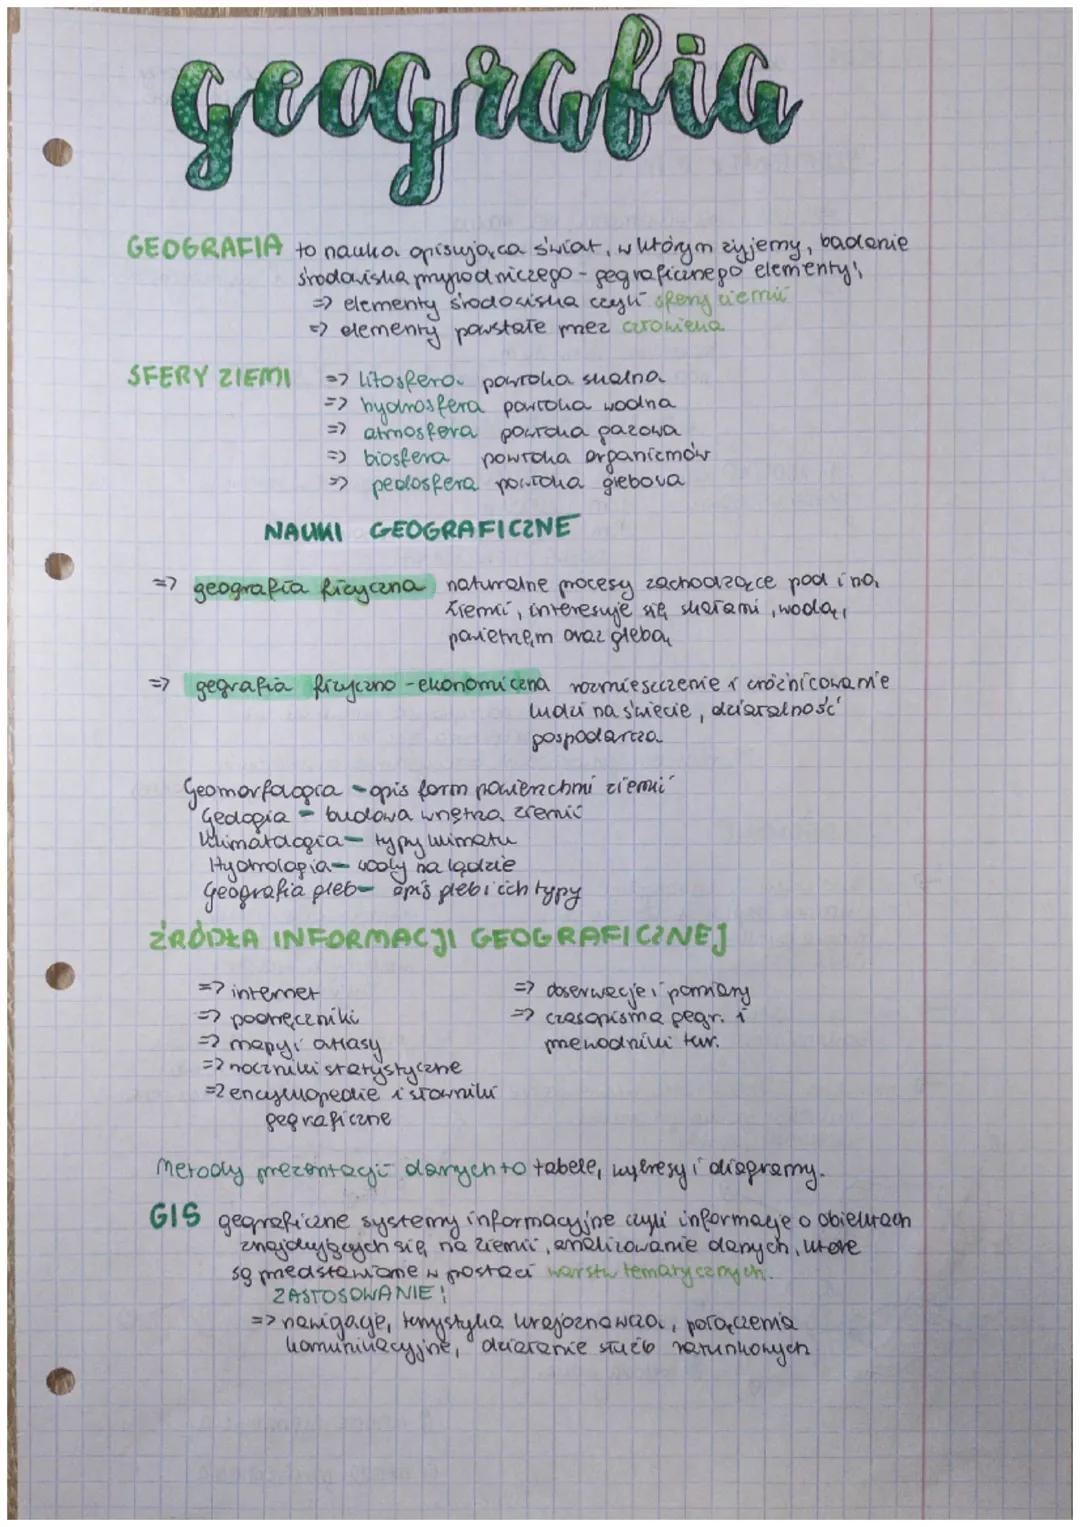 geografia
GEOGRAFIA to nauka opisująca świat, w którym żyjemy, badanie
środowiska przyrodniczego - gegraficznego elementy:
=> elementy środowiska czyli sfery ziemii
=> elementy powstałe przez człowieka
SFERY ZIEMI => litosfera powłoka skalna
=> hydrosfera powłoka wodna
=> atmosfera powłoka gazowa
=> biosfera powłoka organizmów
=> pedosfera powłoka glebowa
NAUKI GEOGRAFICZNE
=> geografia fizyczna naturalne procesy zachodzące pod i na
ziemii, interesuje się skałami, wodą,
powietrzem oraz glebą
=> gegrafia fizyczno-ekonomiczna rozmieszczenie i zróżnicowanie
ludzi na świecie, działalność
gospodarcza
Geomorfologia - opis form powierzchni ziemii
Geologia - budowa wnętrza ziemii
Klimatologia - typy klimatu
Hydrologia - wody na lądzie
Geografia gleb - opis gleb i ich typy
ŹRÓDŁA INFORMACJI GEOGRAFICZNEJ
=> internet
=> podręczniki
=> mapy i atlasy
=> roczniki statystyczne
=> encyklopedie i słowniki
gegraficzne
=> obserwacje i pomiary
=> czasopisma gegr. i
przewodniki tur.
Metody prezentacji danych to tabele, wykresy i diagramy.
GIS gegraficzne systemy informacyjne czyli informacje o obiektach
znajdujących się na ziemii, analizowanie danych, które
są przedstawione w postaci warstw tematycznych.
ZASTOSOWANIE:
=> nawigacje, turystyka krajoznawcza, połączenia
komunikacyjne, działanie służb ratunkowych